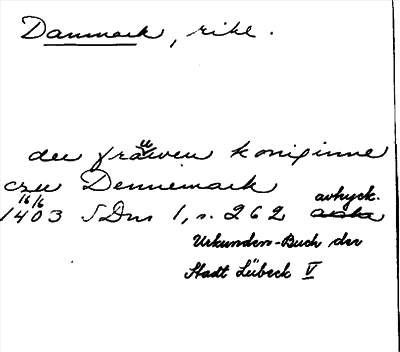 Danmark, rike.
der fraůwen koniginne
czu Dennemark
16/6 avhyck.
1403 SDns 1, s. 262
Urkunden-Buch der
Stadt Lübeck V